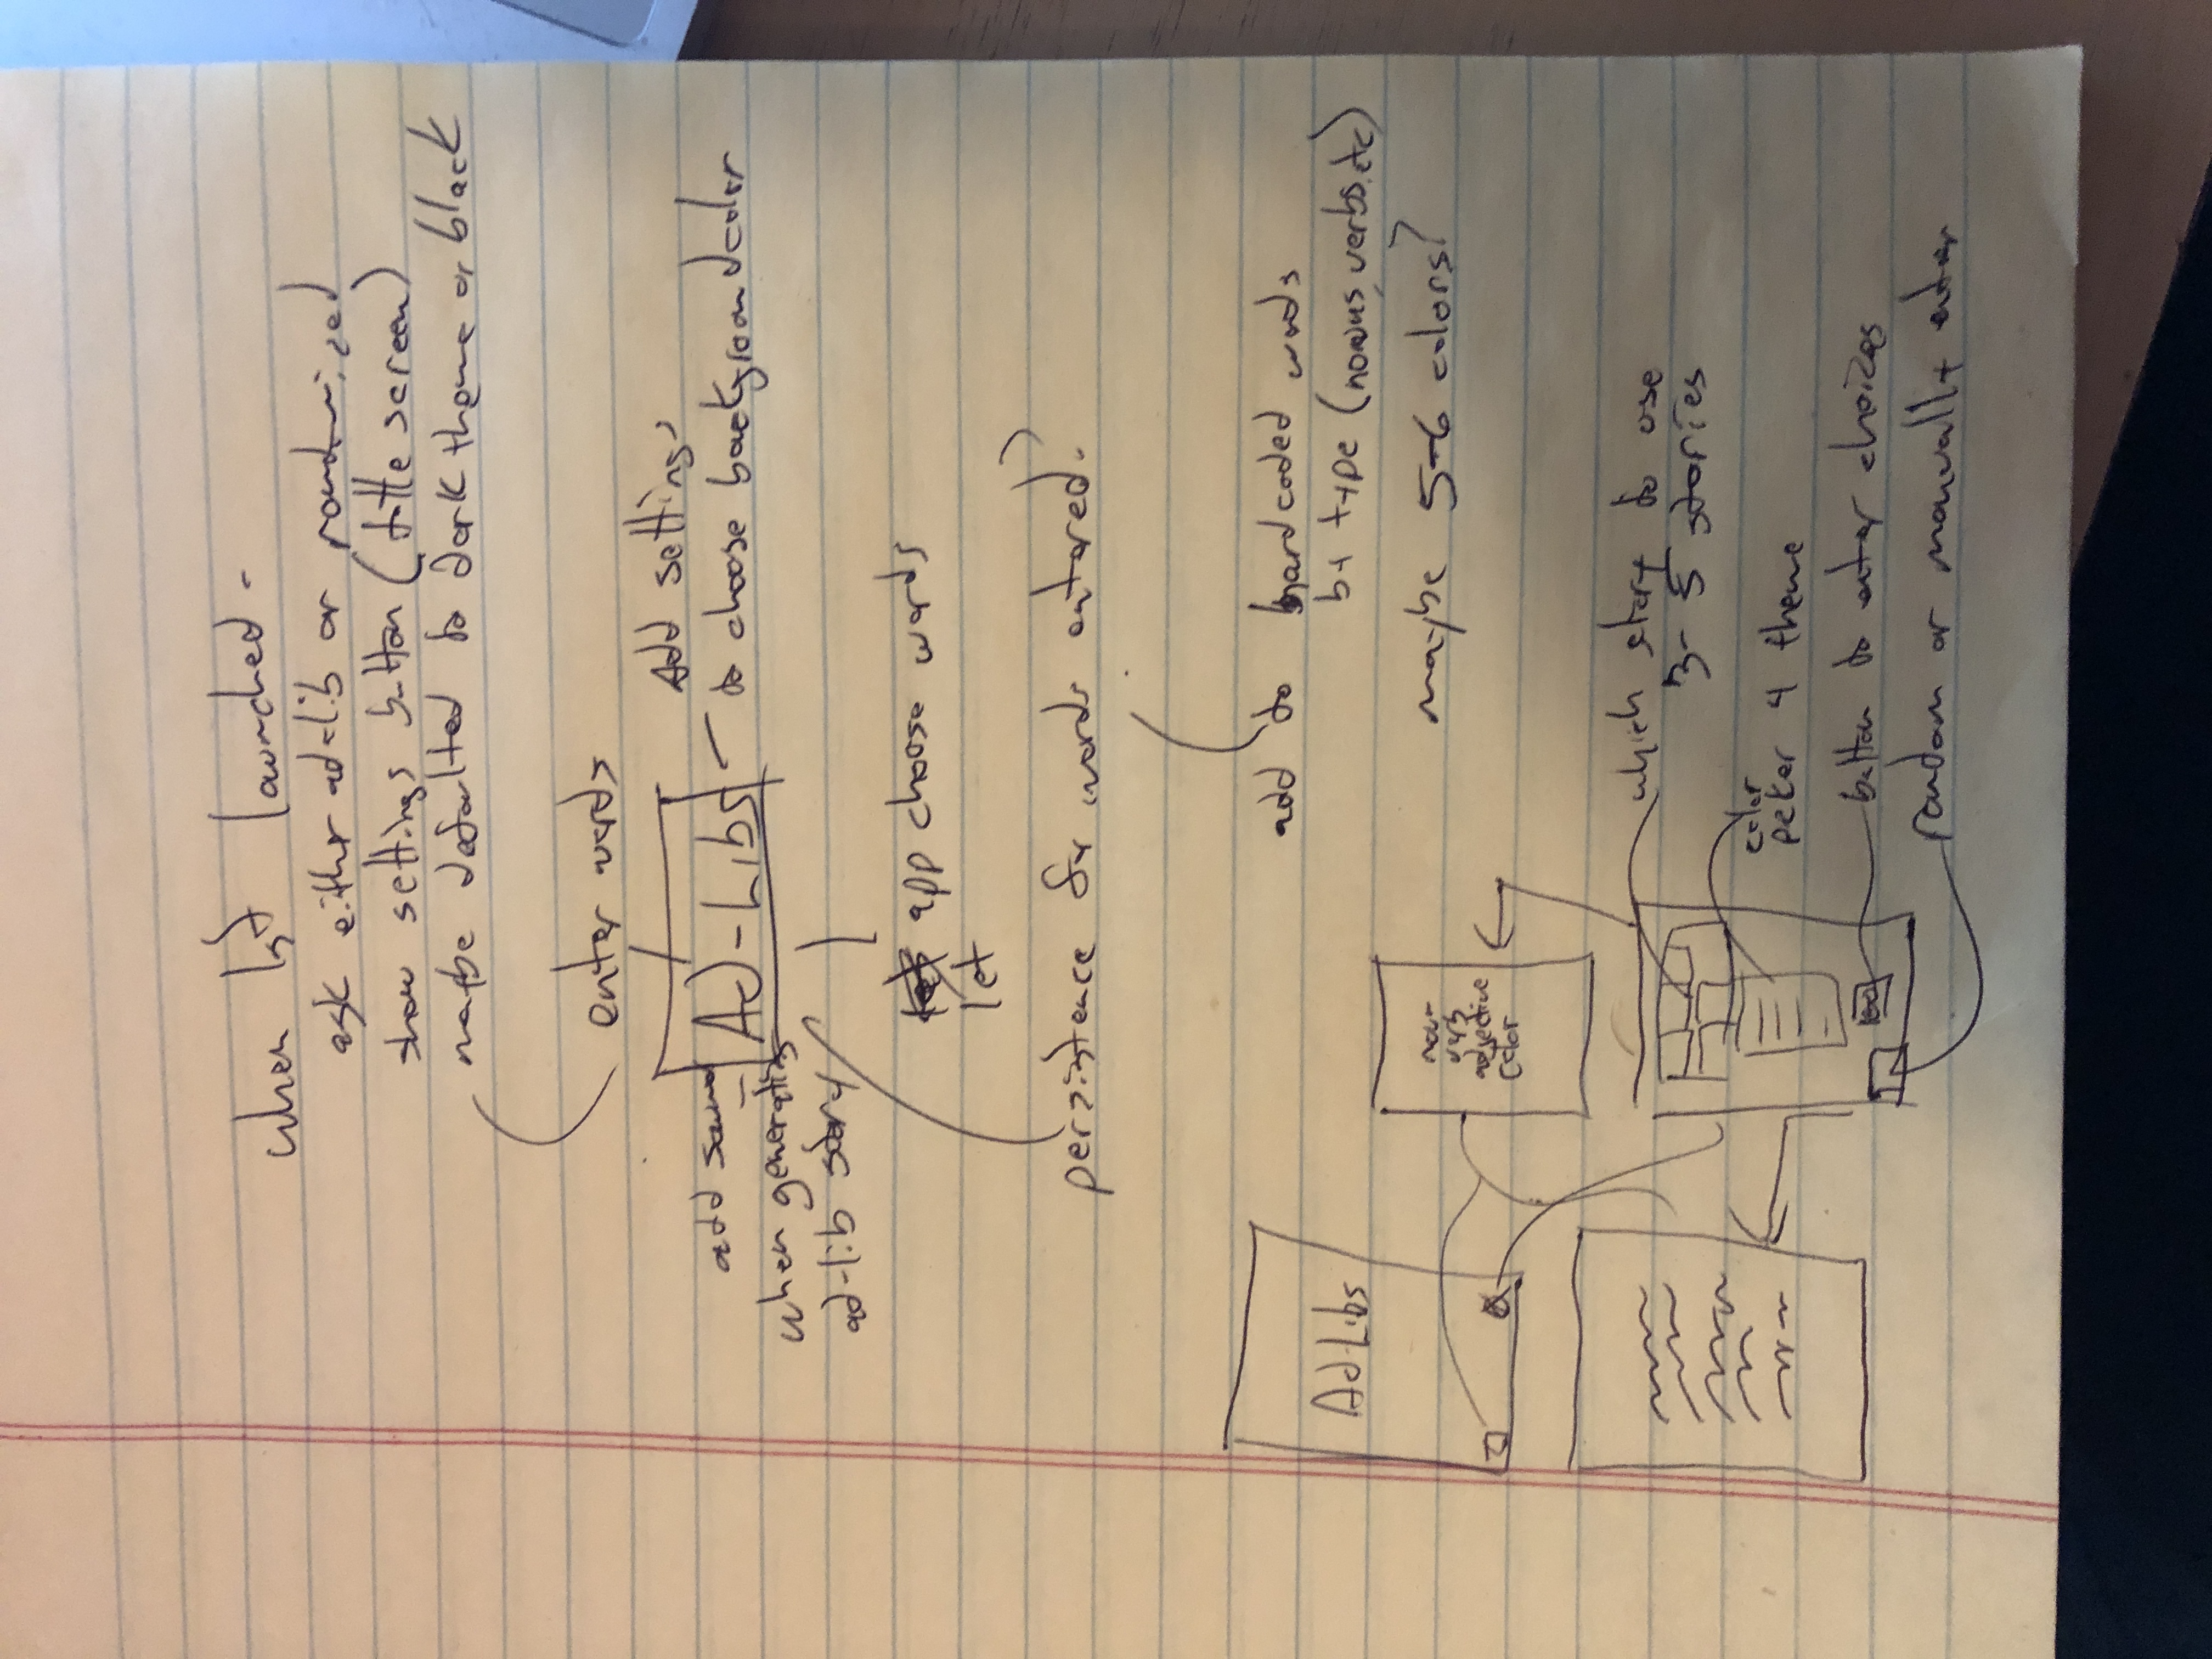 when 1st launched -
ask either ad-lib or randomized
show settings button (title screen)
maybe defaulted to dark theme or black
enter words
Add settings
to choose background color
add sound
when generating
ad-lib story
Ad-Libs
app choose words
let
persistence for words entered?
add to hardcoded words
by type (nouns, verbs, etc)
maybe 5-6 colors?
Ad-Libs
noun
verb
adjective
color
which story to use
3-5 stories
color
picker 4 theme
button to enter choices
random or manually enter